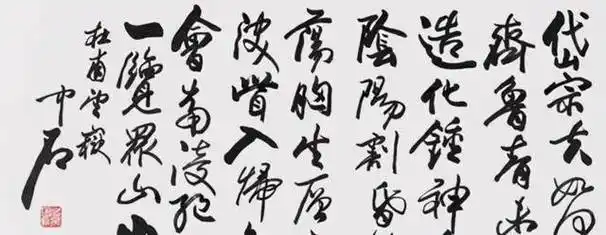 岱宗夫如何
齊魯青未
造化鍾神
陰陽割昏
蕩胸生層
決眥入歸
會當凌絕
一覽眾山小
杜甫望嶽
中石